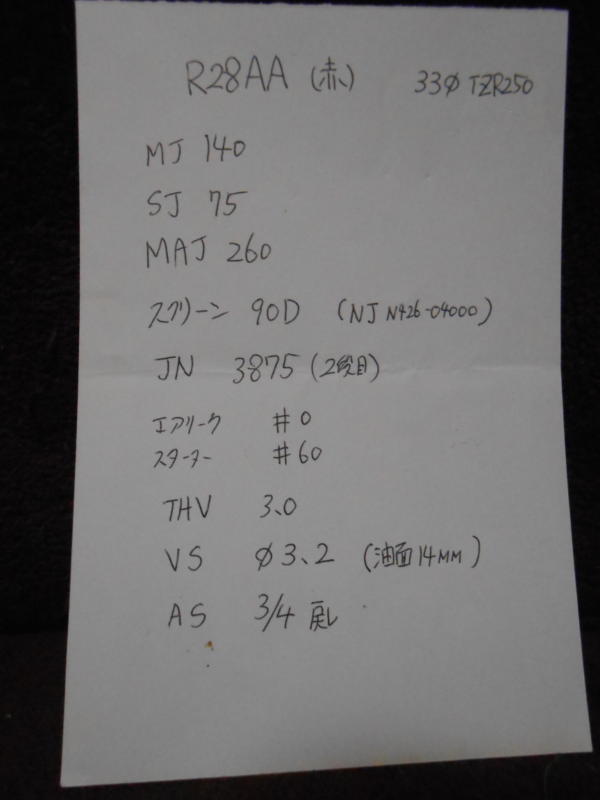 R28AA (赤) 33φ TZR250
MJ 140
SJ 75
MAJ 260
スクリーン 90D (NJ N426-04000)
JN 3875 (2段目)
エアリーク #0
スターター #60
THV 3.0
VS φ3.2 (油面14MM)
AS 3/4 戻し